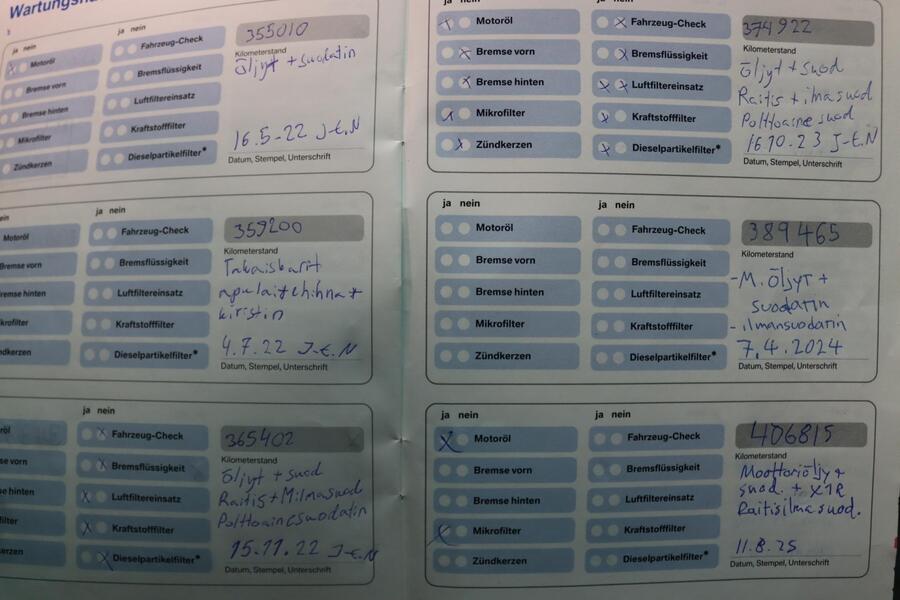 ja nein
ja nein
355010
Motoröl
Fahrzeug-Check
Kilometerstand
Bremse vorn
Bremsflüssigkeit
Öljyt + suodatin
Bremse hinten
Luftfiltereinsatz
Mikrofilter
Kraftstofffilter
16.5-22 J-E.N
Zündkerzen
Dieselpartikelfilter*
Datum, Stempel, Unterschrift
nein
ja nein
359200
Motoröl
Fahrzeug-Check
Kilometerstand
Bremse vorn
Bremsflüssigkeit
Takaisbarit
remse hinten
Luftfiltereinsatz
apulaitehihnat
krofilter
Kraftstofffilter
kiristin
ndkerzen
Dieselpartikelfilter*
4.7.22 J-E.N
Datum, Stempel, Unterschrift
ja nein
365402
röl
Fahrzeug-Check
Kilometerstand
se vorn
Bremsflüssigkeit
Öljyt + suod
e hinten
Luftfiltereinsatz
Raitis + M.ilmasuod
ilter
Kraftstofffilter
Polttoainesuodatin
erzen
Dieselpartikelfilter*
15.11.22 J-E.N
Datum, Stempel, Unterschrift
Motoröl
Fahrzeug-Check
374922
Kilometerstand
Bremse vorn
Bremsflüssigkeit
Öljyt + suod
Bremse hinten
Luftfiltereinsatz
Raitis + ilmasuod
Mikrofilter
Kraftstofffilter
Polttoaine suod
Zündkerzen
Dieselpartikelfilter*
16 10.23 J-E.N
Datum, Stempel, Unterschrift
ja nein
ja nein
389465
Motoröl
Fahrzeug-Check
Kilometerstand
Bremse vorn
Bremsflüssigkeit
-M. Öljyt +
Bremse hinten
Luftfiltereinsatz
suodatin
Mikrofilter
Kraftstofffilter
- ilmansuodatin
Zündkerzen
Dieselpartikelfilter*
7.4.2024
Datum, Stempel, Unterschrift
ja nein
ja nein
406815
Motoröl
Fahrzeug-Check
Kilometerstand
Bremse vorn
Bremsflüssigkeit
Moottoriöljy +
Bremse hinten
Luftfiltereinsatz
suod. + X1R
Mikrofilter
Kraftstofffilter
Raitisilmasuod.
Zündkerzen
Dieselpartikelfilter*
11.8.25
Datum, Stempel, Unterschrift